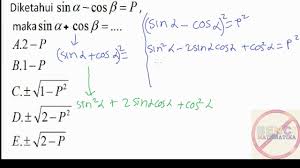 Diketahui sin α ~ cos β = P,
maka sin α + cos β = ....
A. 2 – P
B. 1 – P
C. ±√1 – P²
D. ±√2 – P²
E. ±√2 – P
(sin α - cos α)² = P²
sin² α - 2 sin α cos α + cos² α = P²
(sin α + cos α)²
sin² α + 2 sin α cos α + cos² α
MATEMATIKA